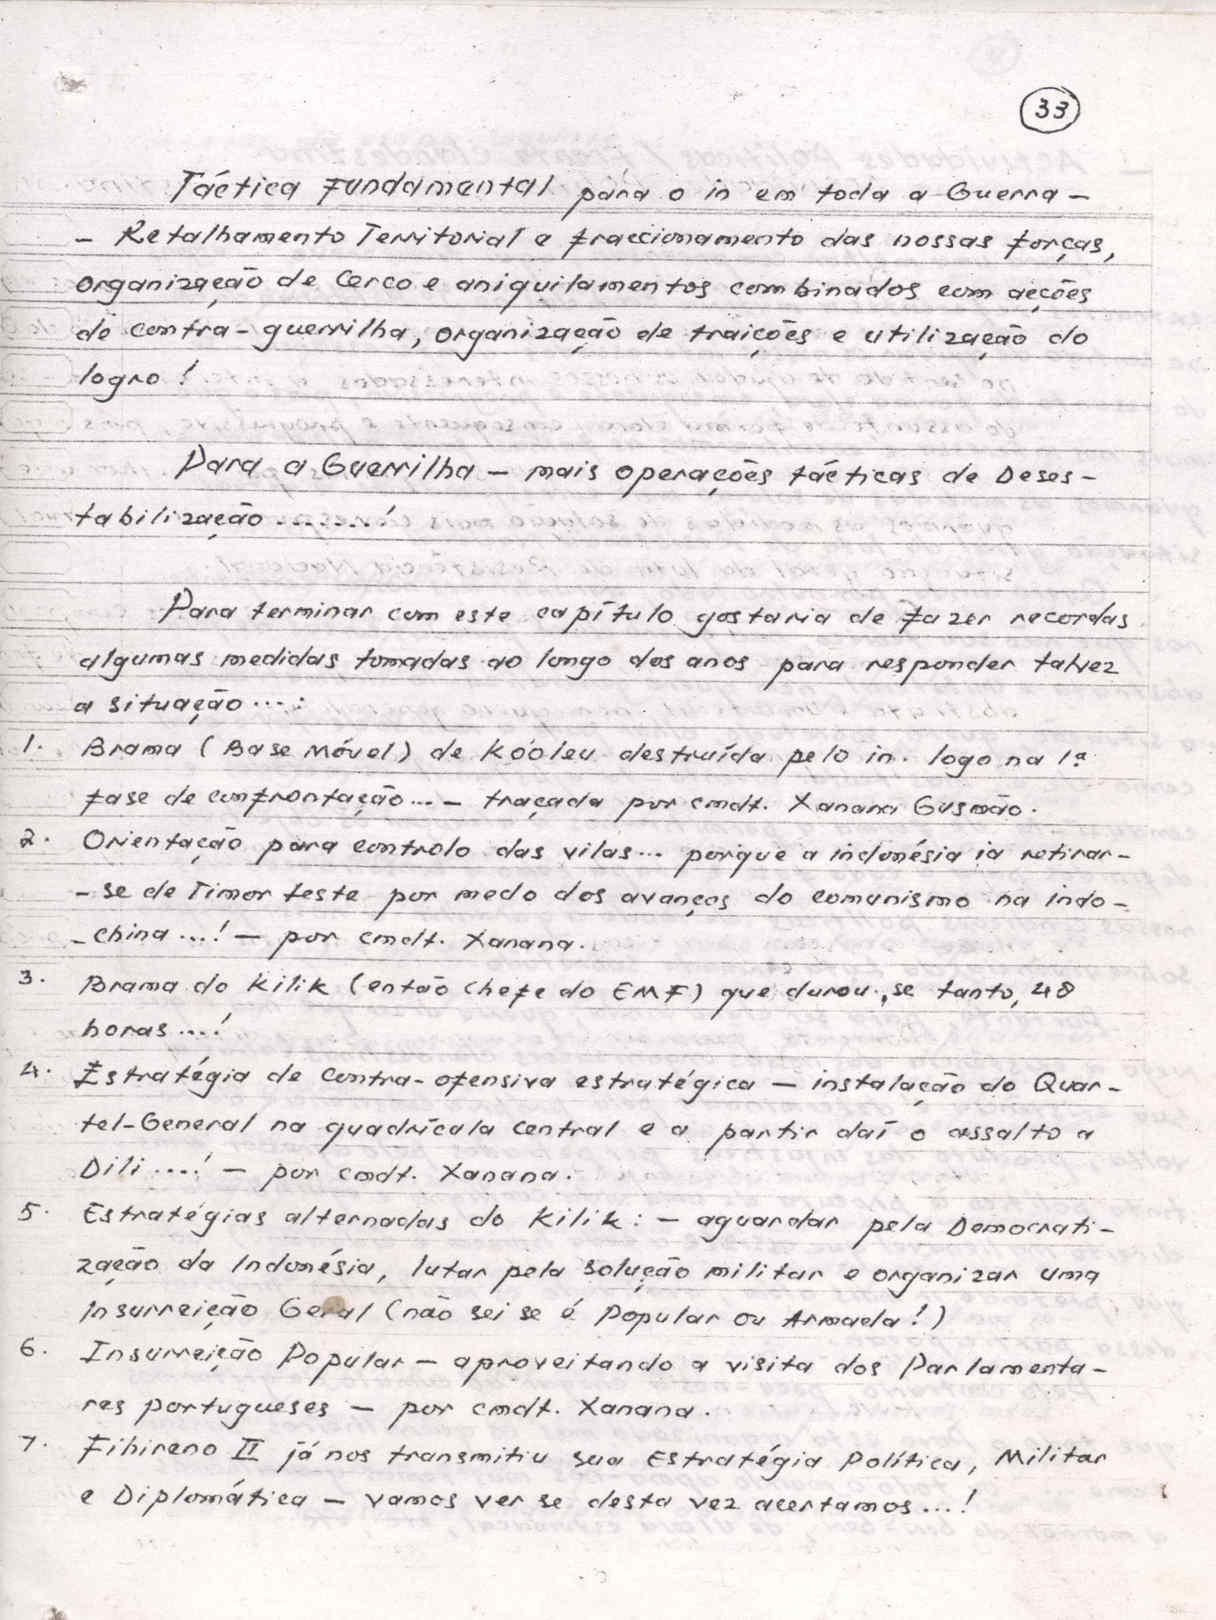 33
Táctica Fundamental para o in em toda a Guerra -
- Retalhamento Territorial e fraccionamento das nossas forças,
organização de Cerco e aniquilamentos combinados com acções
de contra-guerrilha, organização de traições e utilização do
logro!
Para a Guerrilha - mais operações tácticas de Deses-
tabilização ........!
Para terminar com este capítulo gostaria de fazer recordas
algumas medidas tomadas ao longo dos anos para responder talvez
a situação ...:
1. Brama (Base Móvel) de Kóoleu destruída pelo in. logo na 1ª
fase de confrontação... - traçada por cmdt. Xanana Gusmão.
2. Orientação para controlo das vilas... porque a indonésia ia retirar-
-se de Timor Leste por medo dos avanços do comunismo na indo-
-china ...! - por cmdt. Xanana.
3. Brama do Kilik (então chefe do EMF) que durou, se tanto, 48
horas ...!
4. Estratégia de contra-ofensiva estratégica - instalação do Quar-
tel-General na quadrícula central e a partir daí o assalto a
Dili ....! - por cmdt. Xanana.
5. Estratégias alternadas do Kilik: - aguardar pela Democrati-
zação da Indonésia, lutar pela solução militar e organizar uma
Insurreição Geral (não sei se é Popular ou Armada!)
6. Insurreição Popular - aproveitando a visita dos Parlamenta-
res portugueses - por cmdt. Xanana.
7. Fihireno II já nos transmitiu sua Estratégia Política, Militar
e Diplomática - vamos ver se desta vez acertamos...!